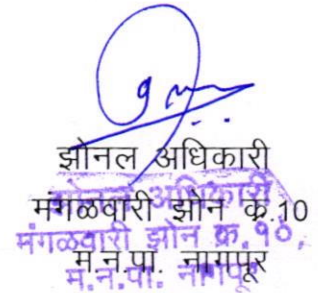 झोनल अधिकारी
मंगळवारी झोन क्र.10
म.न.पा. नागपूर
झोनल अधिकारी
मंगळवारी झोन क्र.१०,
म.न.पा. नागपूर